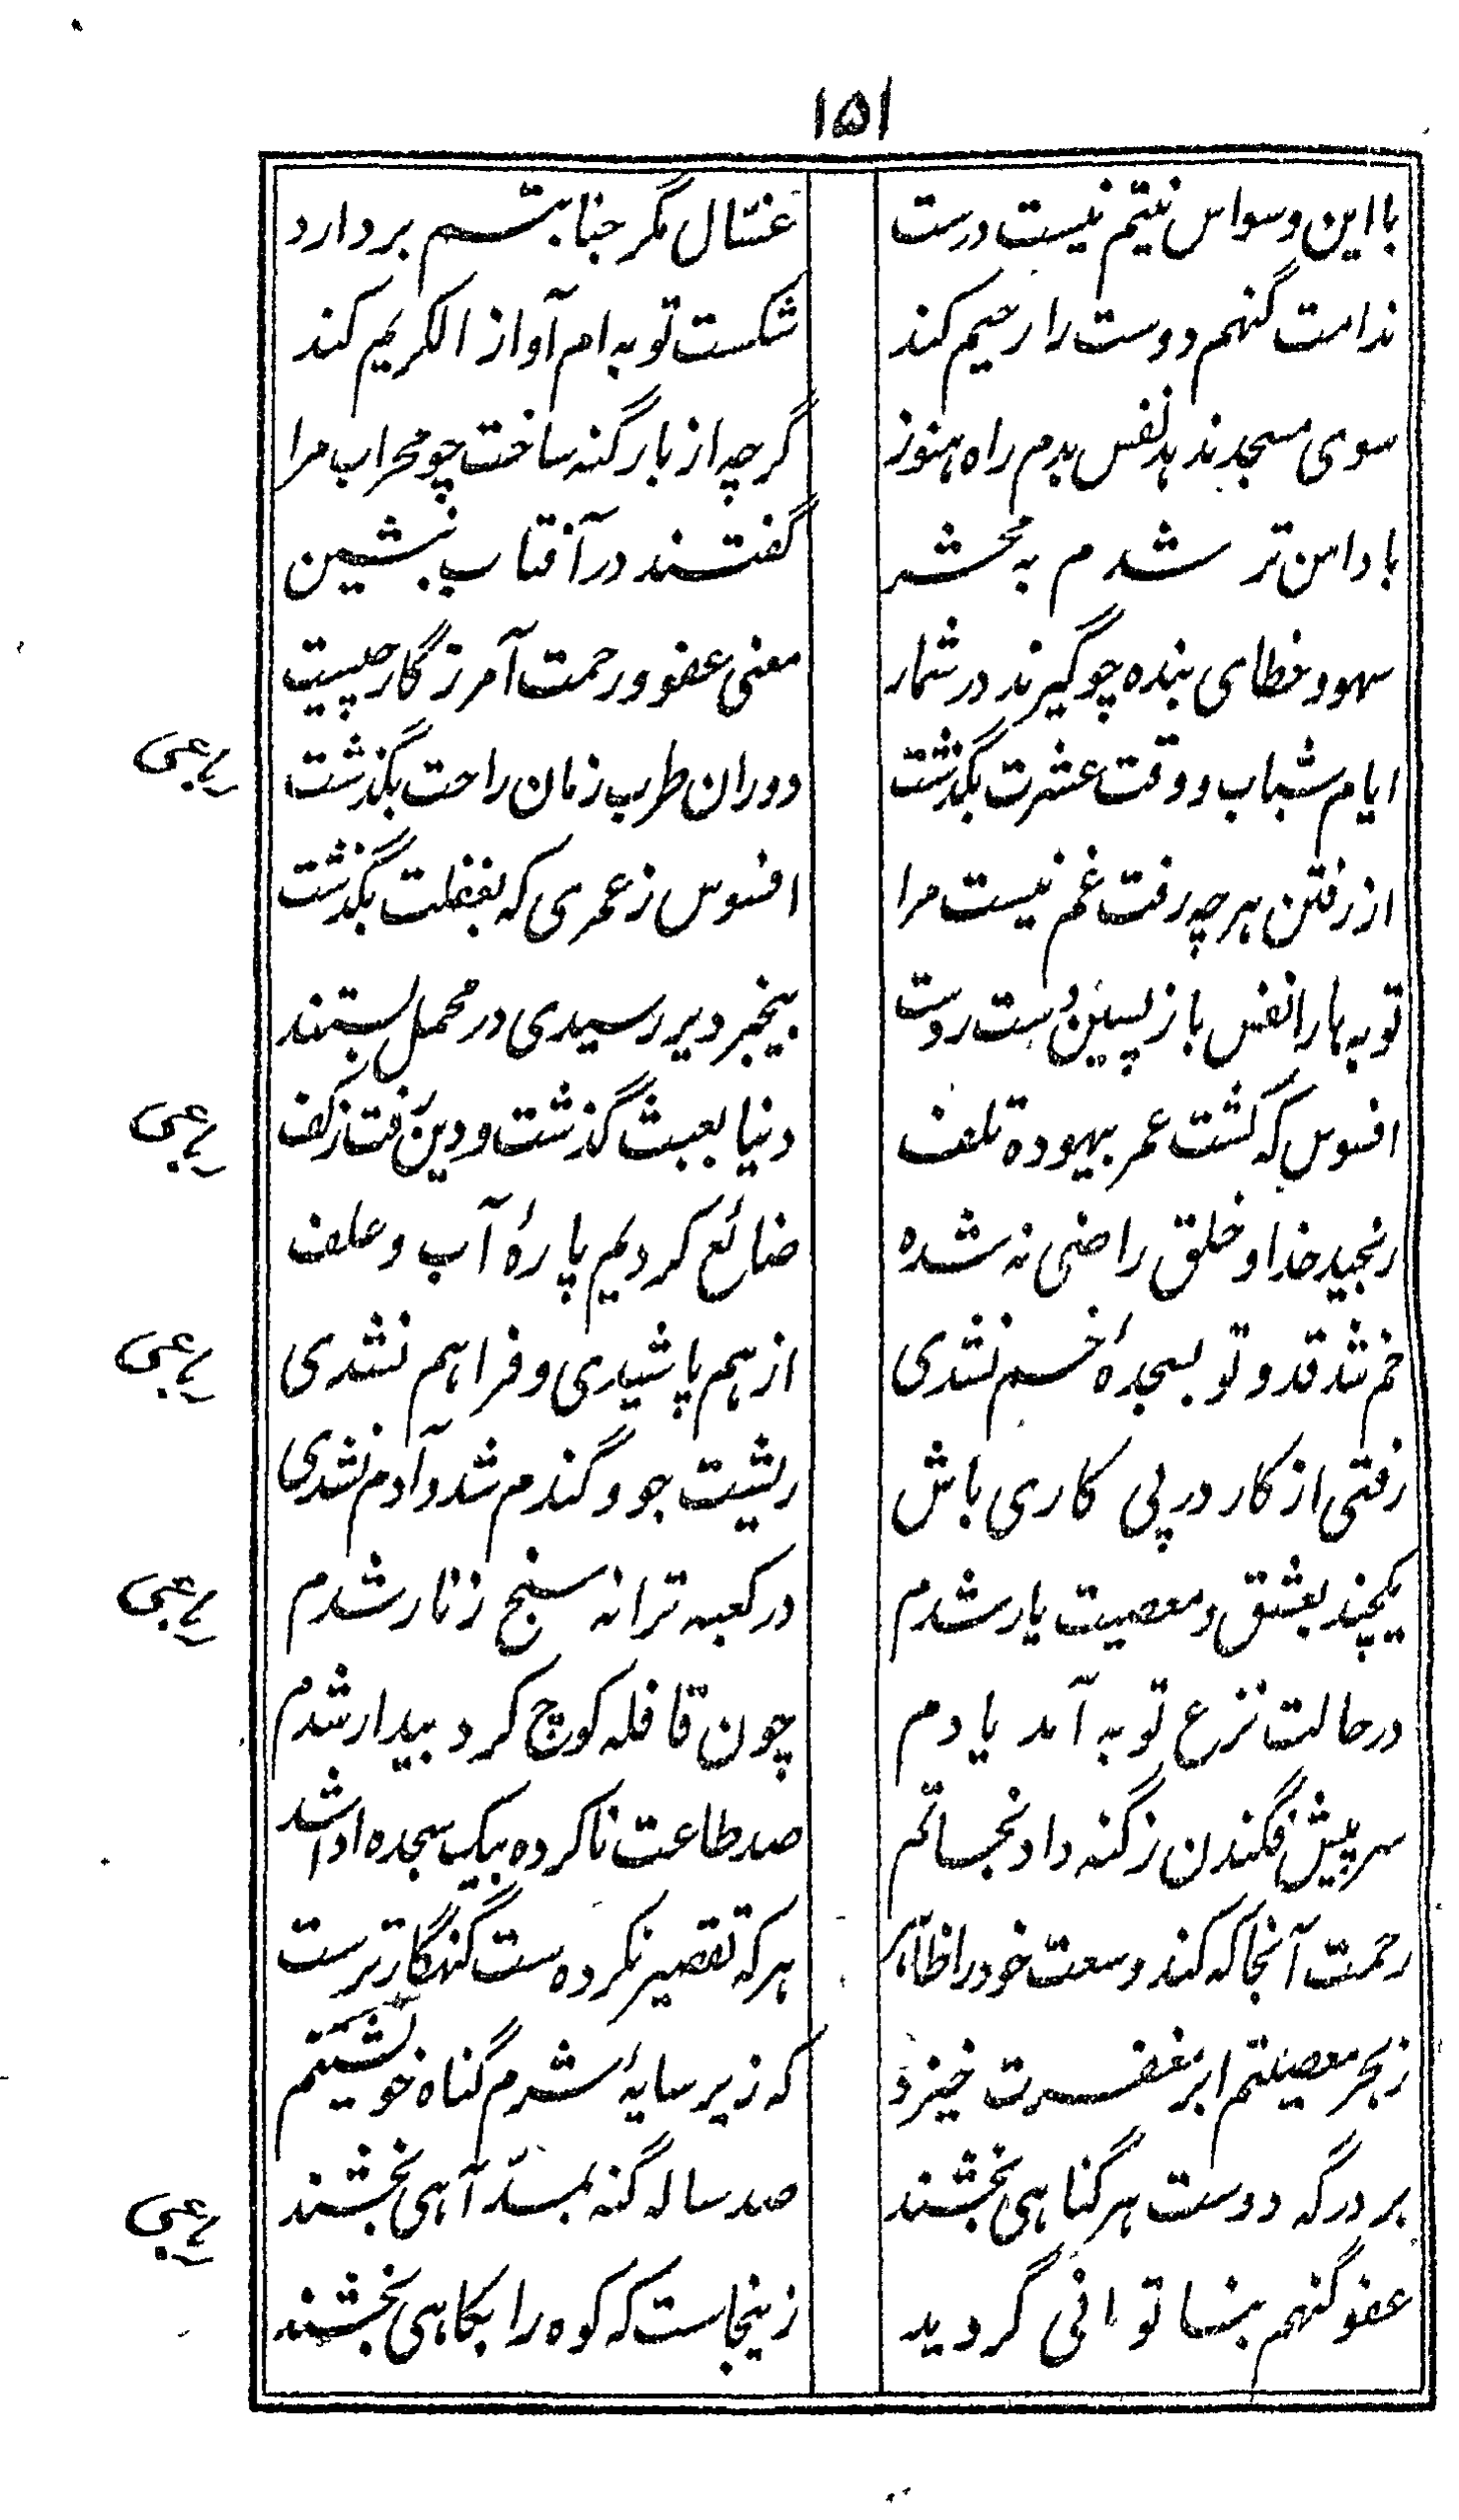 ۱۵۱
با این وسواس نیتم نیست درست غسّال مگر جنابتم بردارد
ندامت گنهم دوست را رحیم کند شکست توبه ام آواز الکریم کند
سوی مسجد ندهد نفس بدم راه هنوز گرچه از بار گنه ساخت چو محراب مرا
با دامن تر شدم به محشر گفتند در آفتاب بنشین
سهو و خطای بنده چو گیرند در شمار معنی عفو و رحمت آمرزگار چیست
ایام شباب و وقت عشرت بگذشت دوران طرب زمان راحت بگذشت رباعی
از رفتن هرچه رفت غم نیست مرا افسوس ز عمری که بغفلت بگذشت
توبه ها را نفس باز پسین دست روست بیخبر دیر رسیدی در محمل بستند
افسوس که گشت عمر بیهوده تلف دنیا بعبث گذشت و دین رفت ز کف رباعی
رنجید خدا و خلق راضی نه شده ضائع کردیم پارهٔ آب و علف
خم شد قد و تو بسجدهٔ خم نشدی از هم پاشیدی و فراهم نشدی رباعی
رفتی از کار در پی کاری باش ریشت جو و گندم شد و آدم نشدی
یکچند بعشق و معصیت یار شدم در کعبه ترانه سنج زنار شدم رباعی
در حالت نزع توبه آمد یادم چون قافله کوچ کرد بیدار شدم
سر پیش فگندن ز گنه داد نجاتم صد طاعت ناکرده بیک سجده ادا شد
رحمت آنجا که کند وسعت خود را ظاهر هر که تقصیر نکرده ست گنهگارترست
ز بحر معصیتم ابر مغفرت خیزد که زیر سایهٔ شرم گناه خویشتنم
بر درگه دوست هر گناهی بخشند صد ساله گنه بمدّ آهی بخشند رباعی
عفو گنهم بنا توانی گردید زینجاست که کوه را بکاهی بخشند